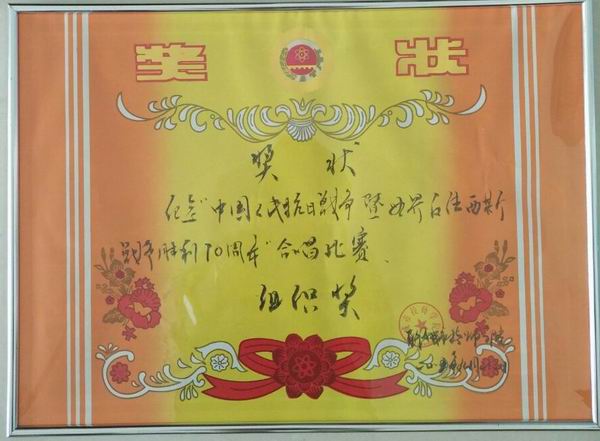 奖 状
奖 状
纪念“中国人民抗日战争暨世界反法西斯
战争胜利70周年”合唱比赛、
组织奖